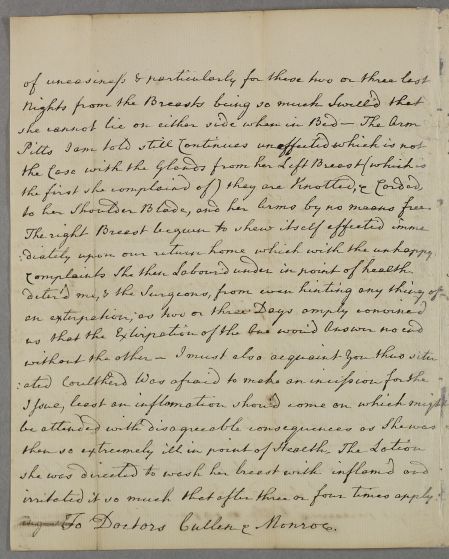 of uneasiness & particularly for these two or three last
Nights from the Breasts being so much Swell'd that
she cannot lie on either side when in Bed — The Arm
Pitts I am told still Continues uneffected which is not
the Case with the Glands from her Left Breast (which is
the first she complaind of) they are Knotted, & Corded
to her Shoulder Blade, and her Arms by no means free
The right Breast begun to shew itself effected imme
:diately upon our return home which with the unhappy
Complaints She then Labour'd under in point of health
deter'd me, & the Surgeons, from even hinting any thing of
an extirpation; as two or three Days amply convinced
us that the Extirpation of the One wou'd Answer no end
without the other — I must also acquaint You thus situ
:ated Coultherd Was afraid to make an incission for the
Issue, least an inflamation shou'd come on which might
be attended with disagreeable consequences as She was
then so extremely ill in point of Health, The Lotion
she was directed to wash her breast with inflam'd and
irritated it so much that after three or four times apply
To Doctors Cullen & Monroe.